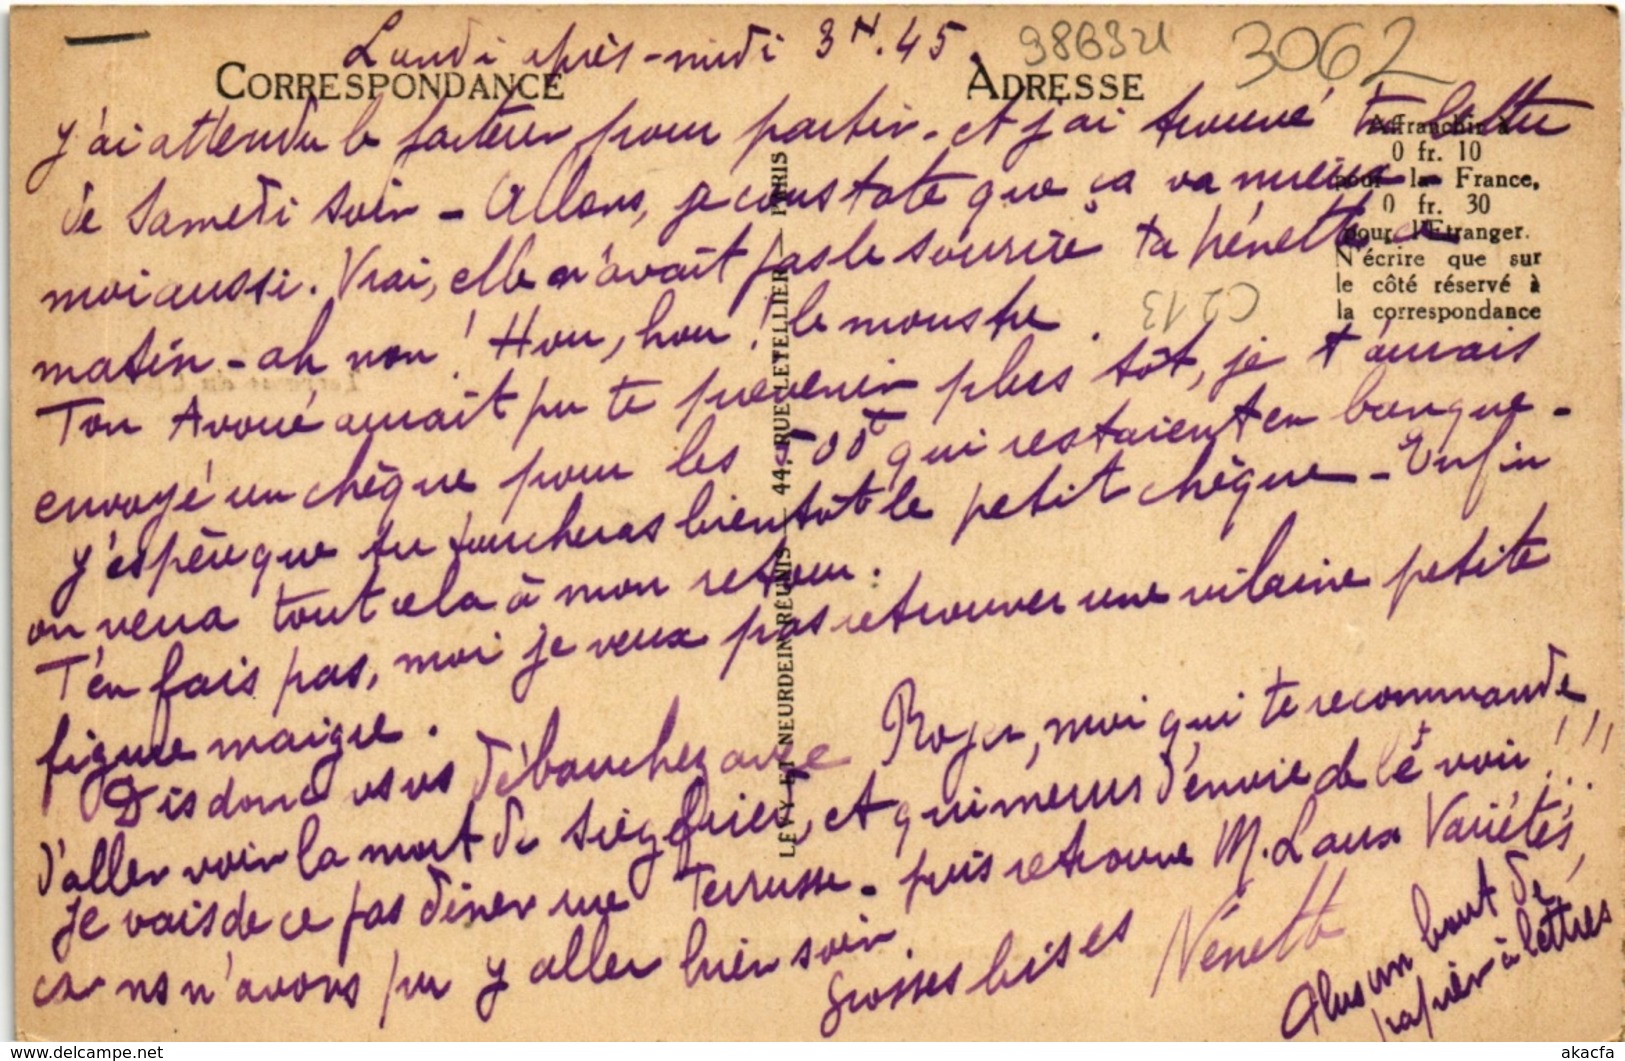 Lundi après-midi 3H.45
386321
3062
CORRESPONDANCE
ADRESSE
J'ai attendu le facteur pour partir - et j'ai trouvé ta lettre
de Samedi soir - Allons, je constate que ça va mieux -
moi aussi. Vrai, elle n'avait pas le sourire ta Nénette ce
matin - ah non ! Hou, hou ! le monstre.
Ton Avoué aurait pu te prévenir plus tôt, je t'aurais
envoyé un chèque pour les 500f qui restaient en banque -
J'espère que tu toucheras bientôt le petit chèque - Enfin
on verra tout cela à mon retour.
T'en fais pas, moi je veux pas retrouver une vilaine petite
figure maigre.
Dis donc vs vs débauchez avec Roger, moi qui te recommande
d'aller voir la mort de Siegfried, et qui meurs d'envie de le voir !!!
Je vais de ce pas dîner rue Terrusse - puis retrouve M. Laux Variétés,
car ns n'avons pu y aller hier soir.
Grosses bises Nénette
Plus un bout de
papier à lettres
Affranchir à
0 fr. 10
pour la France,
0 fr. 30
pour l'Etranger.
N'écrire que sur
le côté réservé à
la correspondance
C213
LEVY ET NEURDEIN RÉUNIS — 44, RUE LETELLIER — PARIS
akacfa